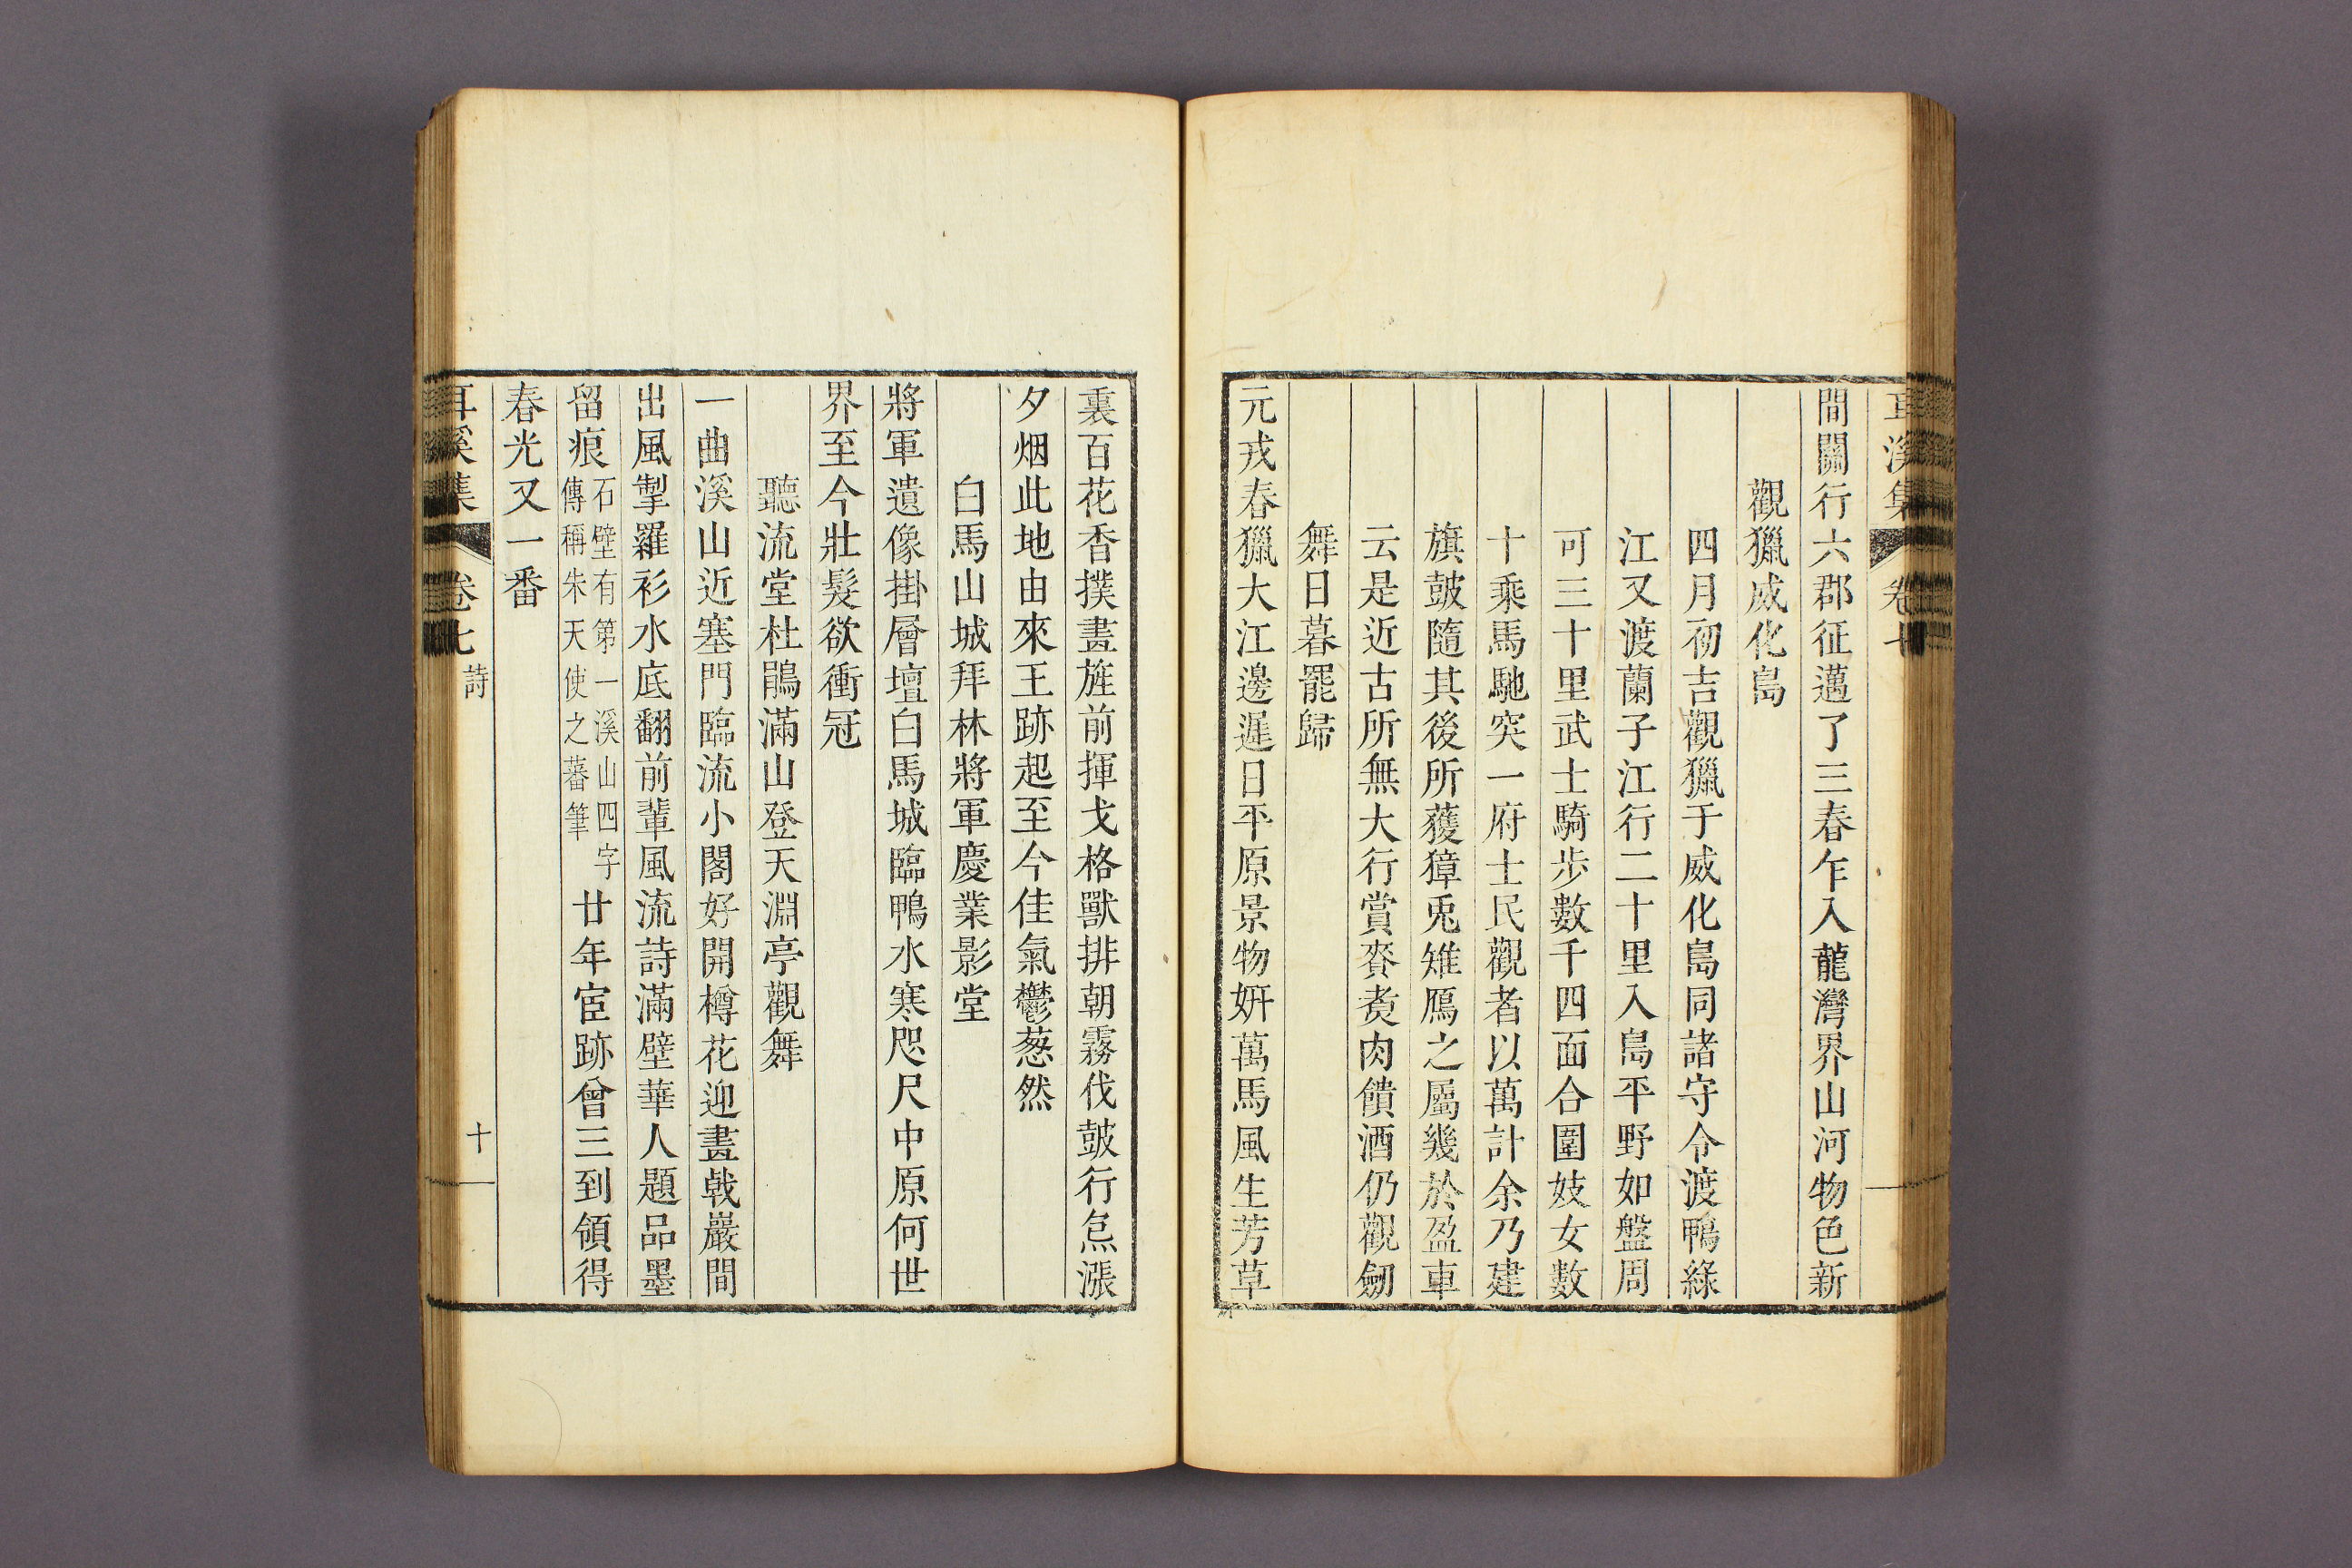 耳溪集 卷七
間關行六郡征邁了三春乍入龍灣界山河物色新
觀獵威化島
四月初吉觀獵于威化島同諸守令渡鴨綠
江又渡蘭子江行二十里入島平野如盤周
可三十里武士騎步數千四面合圍妓女數
十乘馬馳突一府士民觀者以萬計余乃建
旗鼓隨其後所獲獐兎雉鴈之屬幾於盈車
云是近古所無大行賞賚煑肉饋酒仍觀劒
舞日暮罷歸
元戎春獵大江邊遲日平原景物姸萬馬風生芳草
裏百花香撲畫旌前揮戈格獸排朝霧伐鼓行炰漲
夕烟此地由來王跡起至今佳氣鬱葱然
白馬山城拜林將軍慶業影堂
將軍遺像掛層壇白馬城臨鴨水寒咫尺中原何世
界至今壯髮欲衝冠
聽流堂杜鵑滿山登天淵亭觀舞
一曲溪山近塞門臨流小閣好開樽花迎畫戟巖間
出風掣羅衫水底翻前輩風流詩滿壁華人題品墨
留痕石壁有第一溪山四字傳稱朱天使之蕃筆廿年宦跡曾三到領得
春光又一番
耳溪集 卷七 詩 十